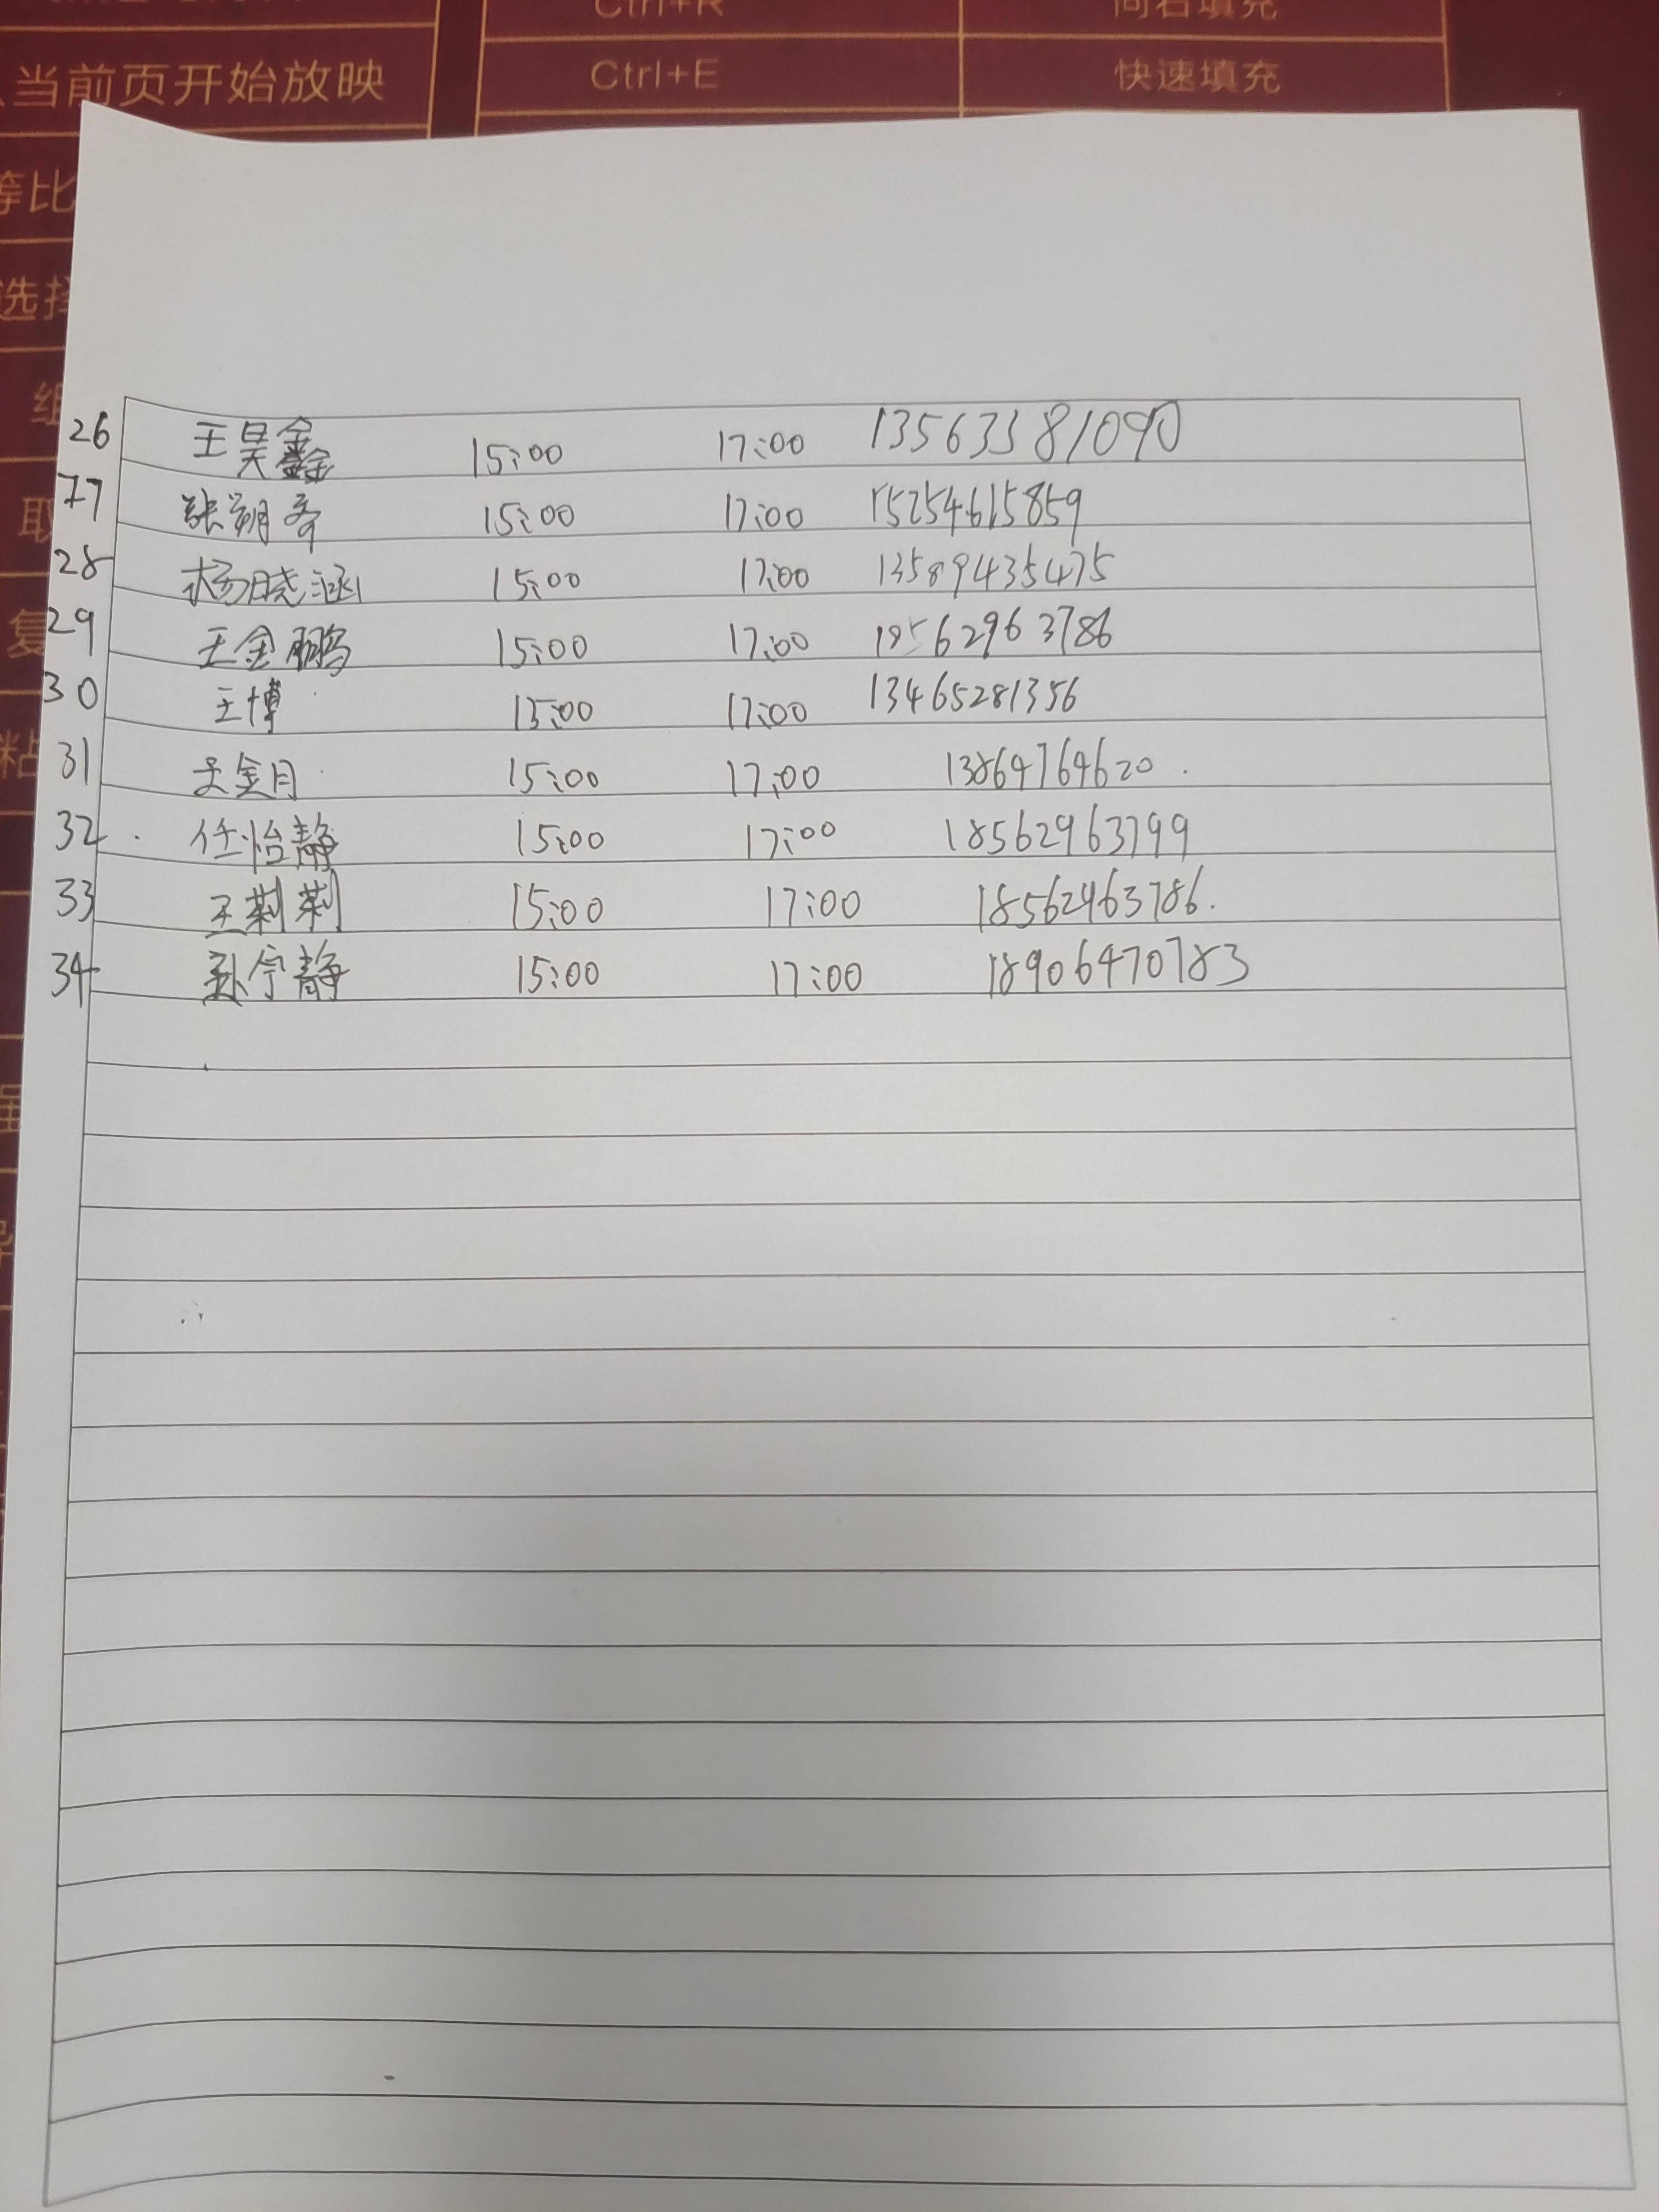 Ctrl+R 向右填充
当前页开始放映 Ctrl+E 快速填充
等比
选择
组
取
复
粘
26 王昊鑫 15:00 17:00 13563381090
27 张朔齐 15:00 17:00 15254615859
28 杨晓涵 15:00 17:00 13589435475
29 王金鹏 15:00 17:00 18562963786
30 王博 15:00 17:00 13465281356
31 金月 15:00 17:00 13864764620.
32 任怡静 15:00 17:00 18562963799
33 王荆荆 15:00 17:00 18562963786.
34 孙宁静 15:00 17:00 18906470783